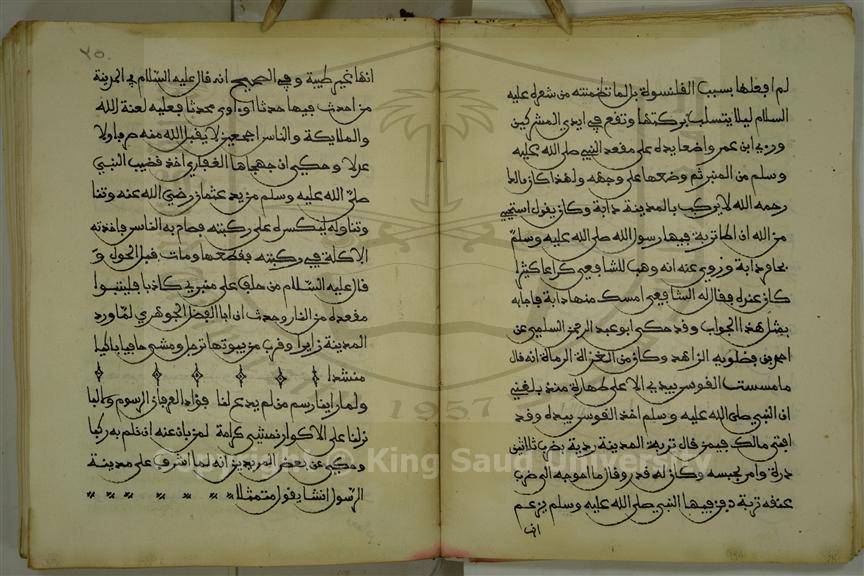 لم افعلها بسبب القلنسوة بل لما تضمنته من شعره عليه
السلام ليلا يتسلب بركتها وتقع في ايدي المشركين
وروي ابن عمر واضعا يده على مقعد النبي صلى الله عليه
وسلم من المنبر ثم وضعها على وجهه ولهذا كان مالك
رحمه الله لا يركب بالمدينة دابة وكان يقول استحيي
من الله ان اطا تربة فيها رسول الله صلى الله عليه وسلم
بحافر دابة وروي عنه انه وهب للشافعي كراعا كثيرا
كان عنده فقال له الشافعي امسك منها دابة فاجابه
بمثل هذا الجواب وقد حكى ابو عبد الرحمن السلمي عن
احمد بن فضلويه الزاهد وكان من الغزاة الرماة انه قال
ما مسست القوس بيدي الا على طهارة منذ بلغني
ان النبي صلى الله عليه وسلم اخذ القوس بيده وقد
افتى مالك فيمن قال تربة المدينة ردية يضرب ثلاثين
درة وامر بحبسه وكان له قدر وقال ما احوجه الى ضرب
عنقه تربة دفن فيها النبي صلى الله عليه وسلم يزعم
انها
٢٥
انها غير طيبة وفي الصحيح انه قال عليه السلام في المدينة
من احدث فيها حدثا او اوى محدثا فعليه لعنة الله
والملايكة والناس اجمعين لا يقبل الله منه صرفا ولا
عدلا وحكي ان جهجاها الغفاري اخذ قضيب النبي
صلى الله عليه وسلم من يد عثمان رضي الله عنه وتنا
وتناوله ليكسره على ركبته فصاح به الناس فاخذته
الاكلة في ركبته فقطعها ومات قبل الحول و
قال عليه السلام من حلف على منبري كاذبا فليتبوا
مقعده من النار وحدث ان ابا الفضل الجوهري لما ورد
المدينة زايرا وقرب من بيوتها ترجل ومشى حافيا باكيا
منشدا
ولما راينا رسم من لم يدع لنا فؤادا لعرفان الرسوم ولا لبا
نزلنا على الاكوار نمشي كرامة لمن بان عنه ان نلم به ركبا
وحكي عن بعض المريدين انه لما اشرف على مدينة
الرسول انشا يقول متمثلا
1957
Copyright © King Saud University